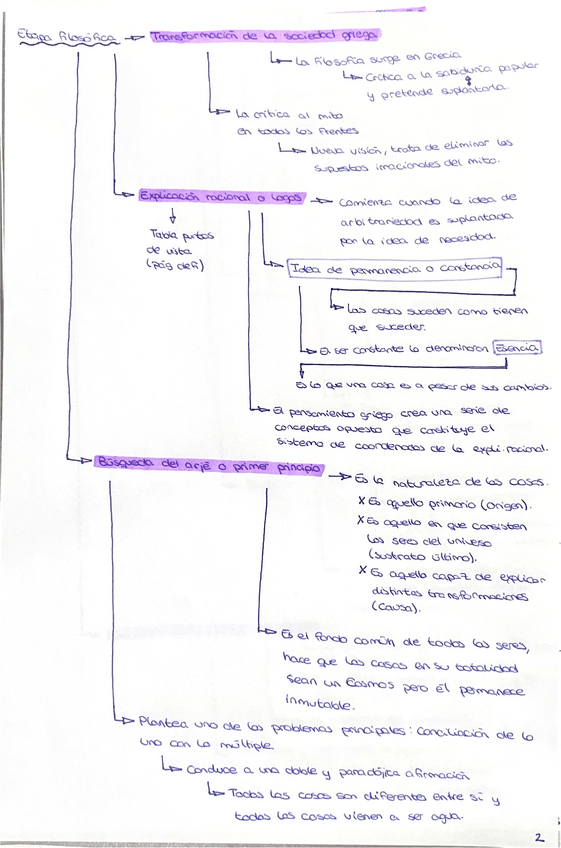 Etapa filosófica → Transformación de la sociedad griega
La filosofía surge en Grecia
Crítica a la sabiduría popular
y pretende suplantarla.
La crítica al mito
en todos los frentes
Nueva visión, trata de eliminar los
supuestos irracionales del mito.
Explicación racional o logos → Comienza cuando la idea de
arbitrariedad es suplantada
por la idea de necesidad.
Tabla puntos
de vista
(pág de fi)
Idea de permanencia o constancia
Las cosas suceden como tienen
que suceder.
El ser constante lo denominaron Esencia
Es lo que una cosa es a pesar de sus cambios.
El pensamiento griego crea una serie de
conceptos opuesto que constituye el
sistema de coordenadas de la expli. racional.
Búsqueda del arjé o primer principio → Es la naturaleza de las cosas.
x Es aquello primario (origen).
x Es aquello en que consisten
los seres del universo
(sustrato último).
x Es aquello capaz de explicar
distintas transformaciones
(causa).
Es el fondo común de todos los seres,
hace que las cosas en su totalidad
sean un Cosmos pero él permanece
inmutable.
Plantea uno de los problemas principales: Conciliación de lo
uno con lo múltiple.
Conduce a una doble y paradójica afirmación
Todas las cosas son diferentes entre sí y
todas las cosas vienen a ser agua.
2